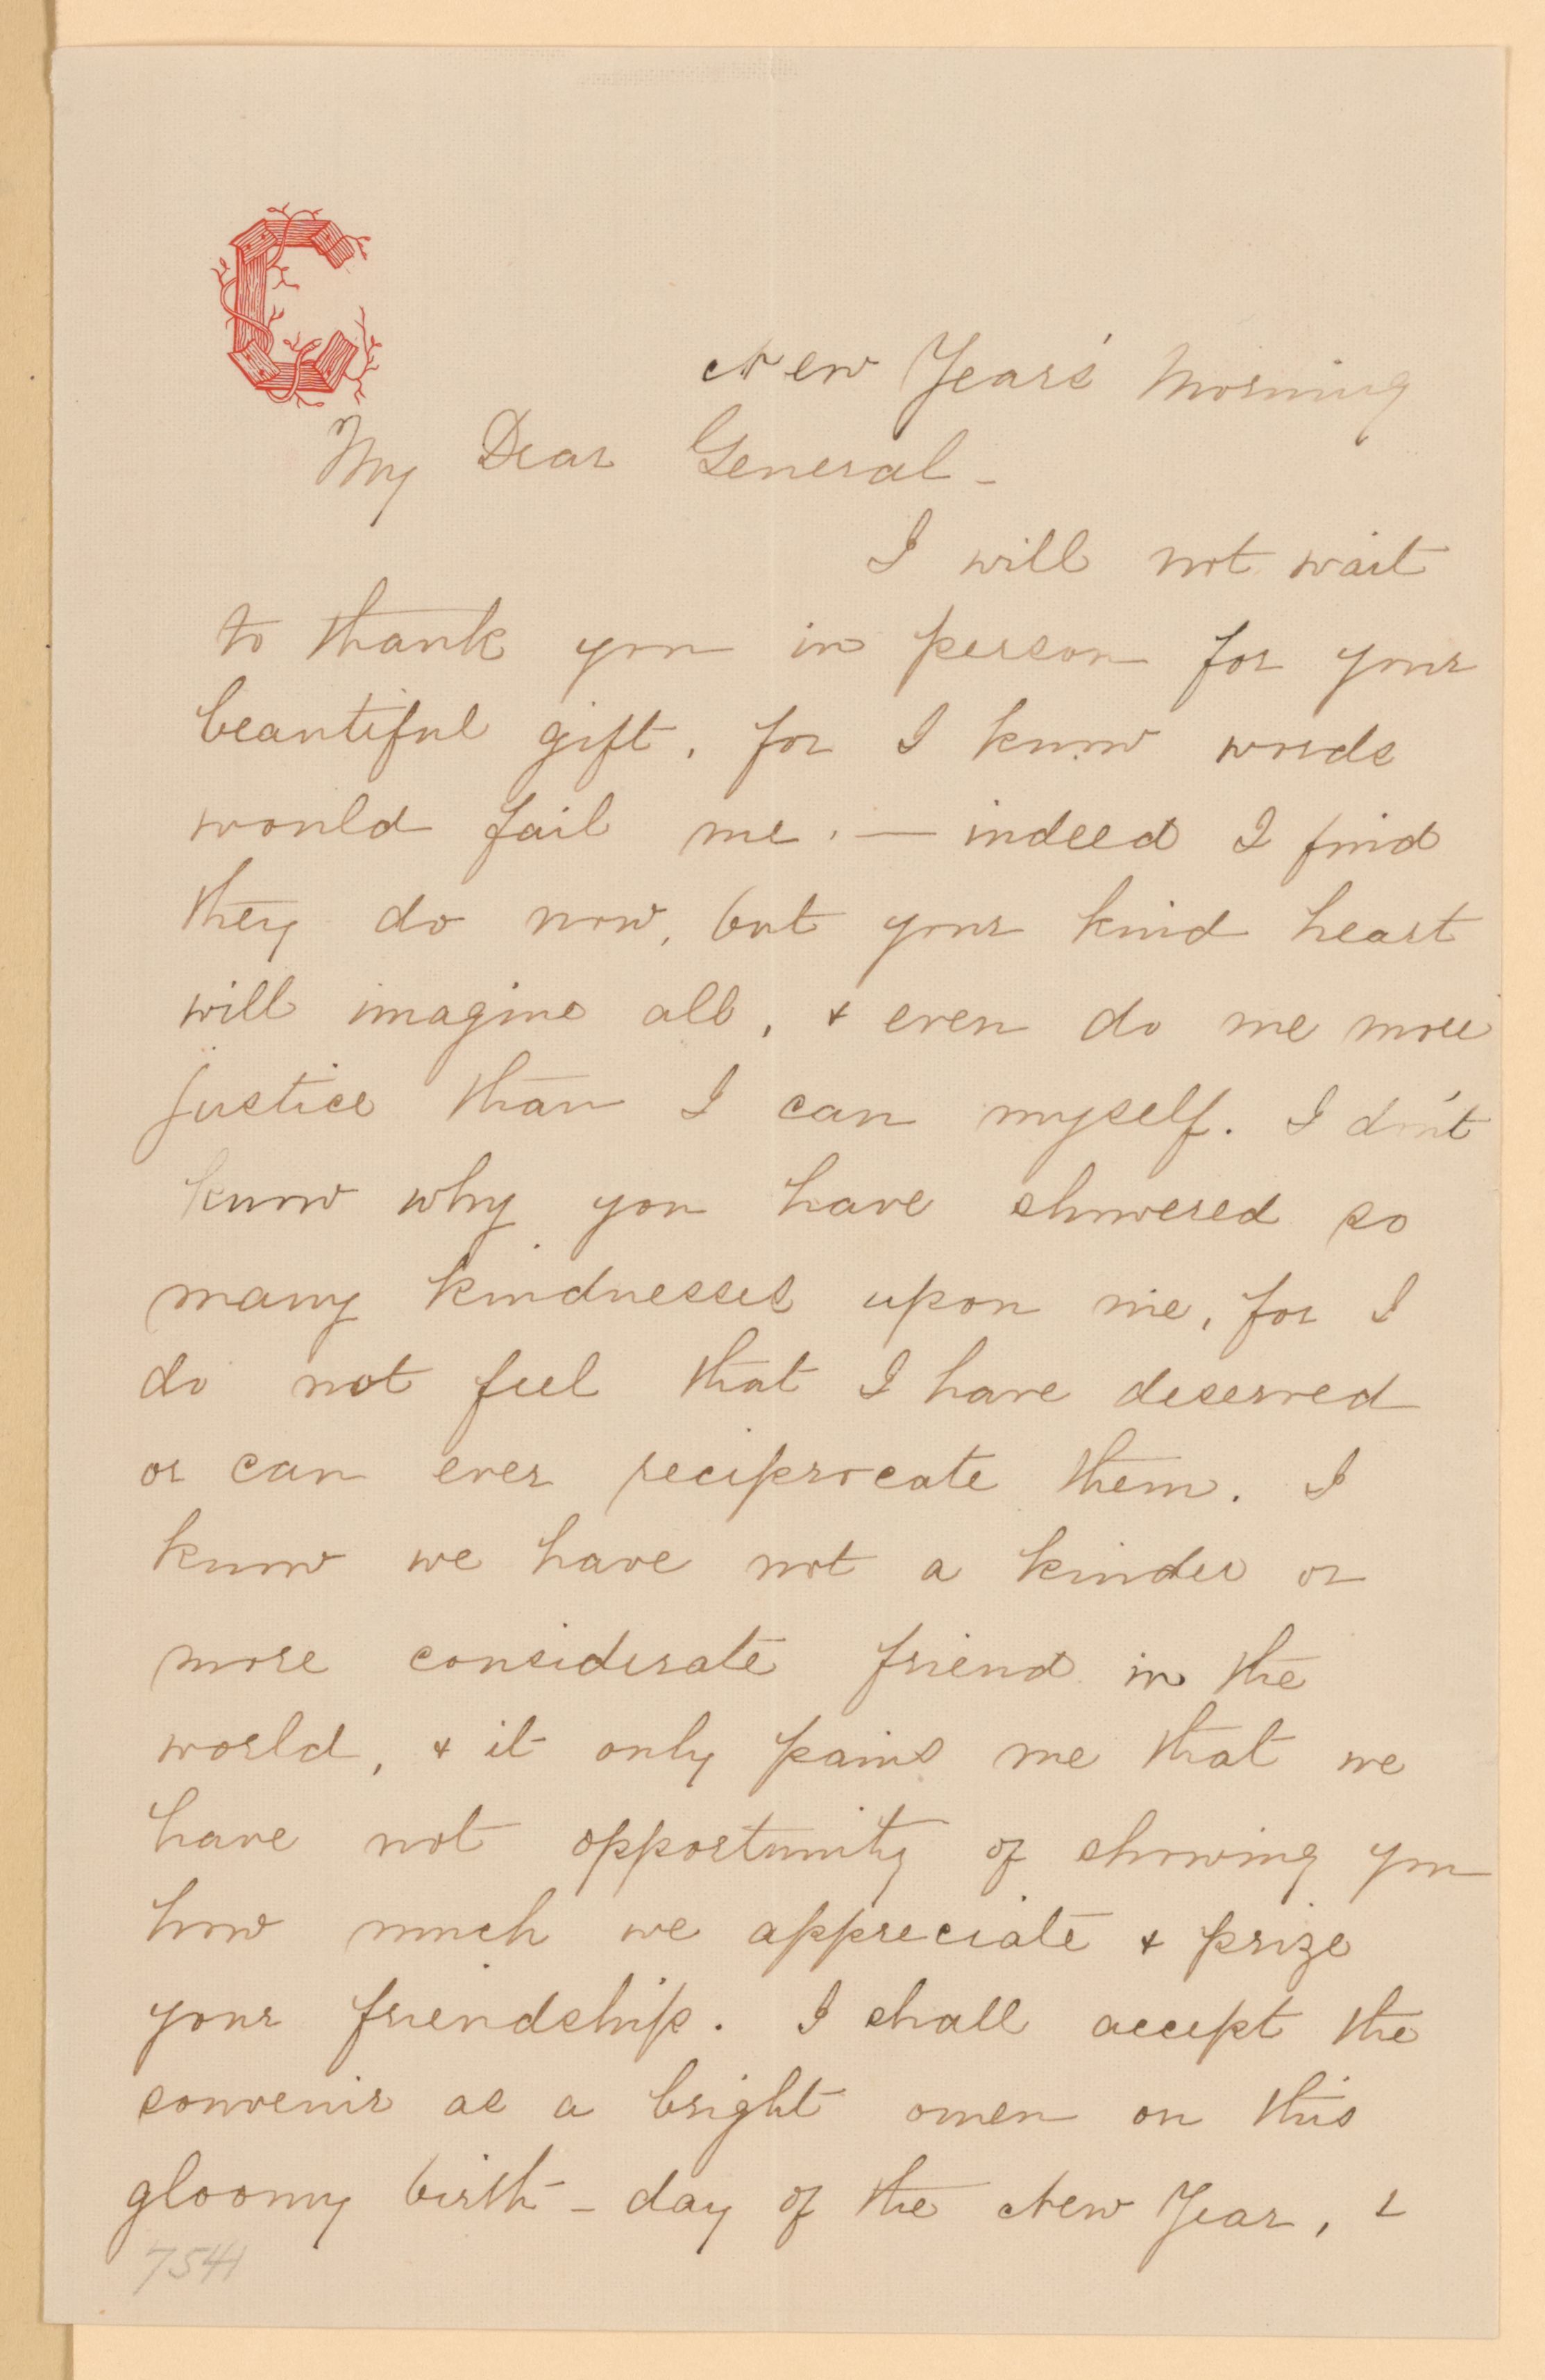 C
New Years' Morning
My Dear General -
I will not wait
to thank you in person for your
beautiful gift, for I know words
would fail me. — indeed I find
they do now, but your kind heart
will imagine all, & even do me more
justice than I can myself. I don't
know why you have showered so
many kindnesses upon me, for I
do not feel that I have deserved
or can ever reciprocate them. I
know we have not a kinder or
more considerate friend in the
world, & it only pains me that we
have not opportunity of showing you
how much we appreciate & prize
your friendship. I shall accept the
souvenir as a bright omen on this
gloomy birth-day of the New Year, &
7541